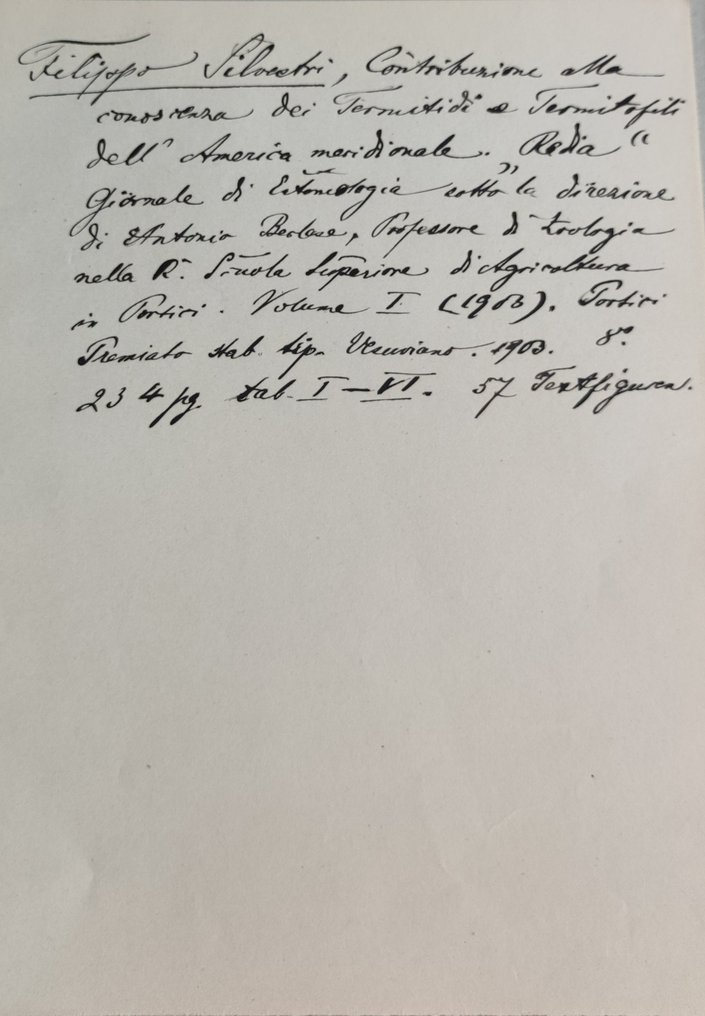 Filippo Silvestri, Contribuzione alla
conoscenza dei Termitidi e Termitofili
dell' America meridionale. Redia “
„ Giornale di Entomologia sotto la direzione
di Antonio Berlese, Professore di Zoologia
nella R. Scuola Superiore di Agricoltura
in Portici. Volume I (1903). Portici
Premiato stab. tip. Vesuviano. 1903. 8º.
234 pg. tab. I–VI. 57 Textfiguren.